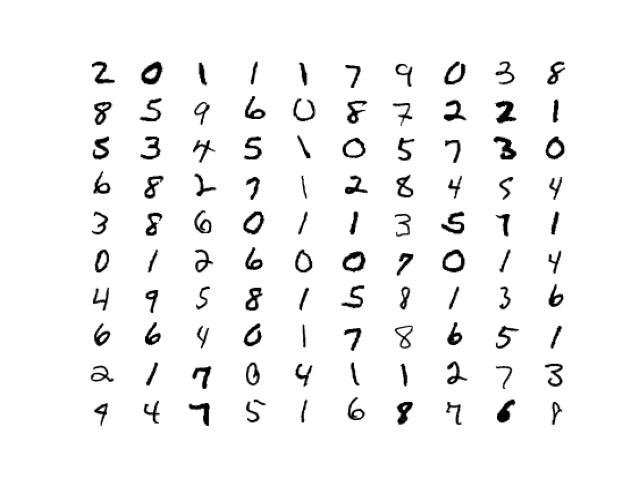 2 0 1 1 1 7 9 0 3 8
8 5 9 6 0 8 7 2 2 1
5 3 4 5 1 0 5 7 3 0
6 8 2 7 1 2 8 4 5 4
3 8 6 0 1 1 3 5 7 1
0 1 2 6 0 0 7 0 1 4
4 9 5 8 1 5 8 1 3 6
6 6 4 0 1 7 8 6 5 1
2 1 7 0 4 1 1 2 7 3
9 4 7 5 1 6 8 7 6 8